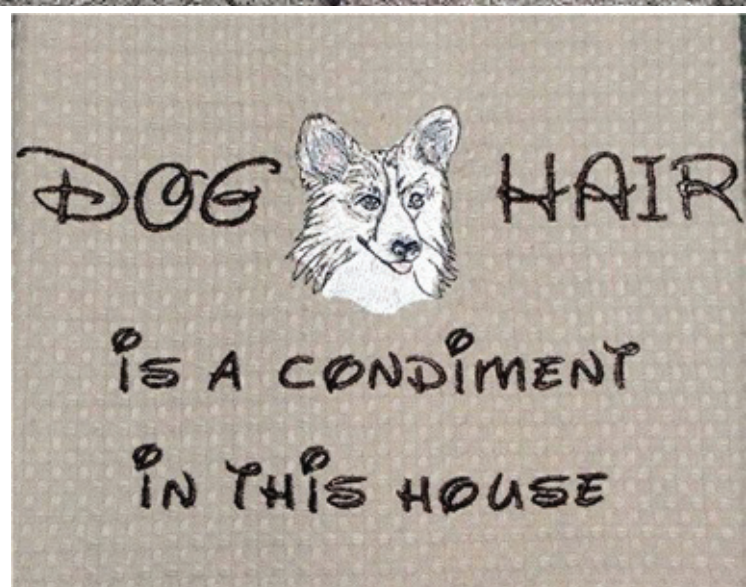 DOG HAIR
is A CONDiMENT
iN THiS HOUSE